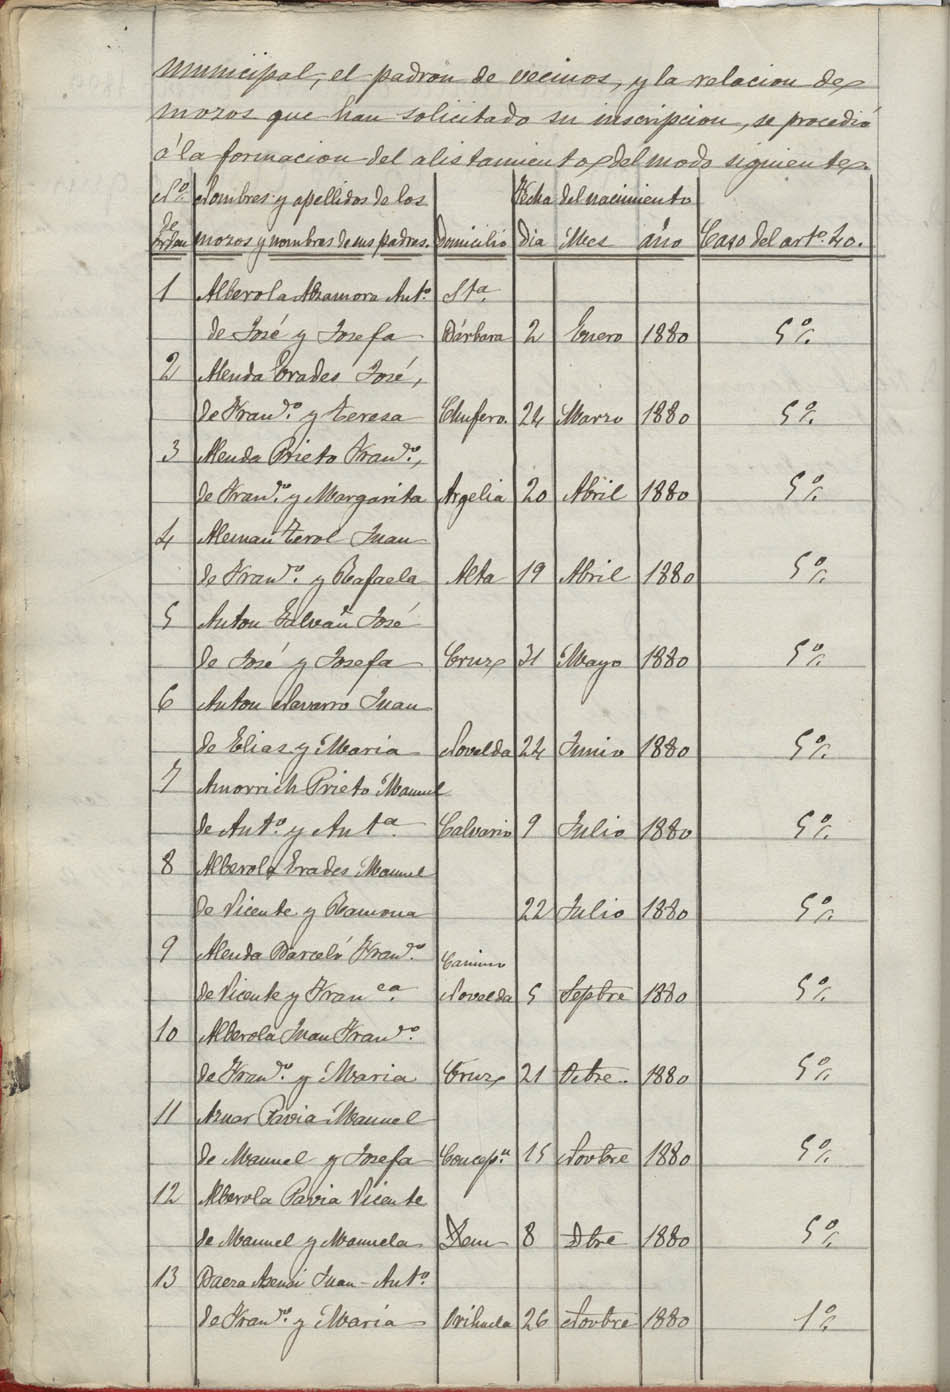 municipal, el padron de vecinos, y la relacion de
mozos que han solicitado su inscripcion, se procedió
á la formacion del alistamiento del modo siguiente.
Nº de orden Nombres y apellidos de los mozos y nombres de sus padres. Domicilio Fecha del nacimiento dia Mes año Caso del artº. 40.
1 Alberola Alzamora Antº. Sta.
de José y Josefa Bárbara 2 Enero 1880 5º
2 Alenda Erades José,
de Franco. y Teresa Chufero. 24 Marzo 1880 5º
3 Alenda Prieto Franco.,
de Franco. y Margarita Argelia 20 Abril 1880 5º
4 Aleman Terol Juan
de Franco. y Rafaela Alta 19 Abril 1880 5º
5 Anton Galvañ José
de José y Josefa Cruz 31 Mayo 1880 5º
6 Anton Navarro Juan
de Elias y Maria Novelda 24 Junio 1880 5º
7 Amorrich Prieto Manuel
de Antº. y Antª. Calvario 9 Julio 1880 5º
8 Alberola Erades Manuel
de Vicente y Ramona 22 Julio 1880 5º
9 Alenda Barceló Franco. Camino
de Vicente y Franca. Novelda 5 Sepbre 1880 5º
10 Alberola Juan Franco.
de Franco. y Maria Cruz 21 Octbre. 1880 5º
11 Aznar Pavia Manuel
de Manuel y Josefa Concepn. 15 Novbre 1880 5º
12 Alberola Pavia Vicente
de Manuel y Manuela Idem 8 Dbre 1880 5º
13 Baeza Asensi Juan-Antº.
de Franco. y María Orihuela 26 Novbre 1880 1º